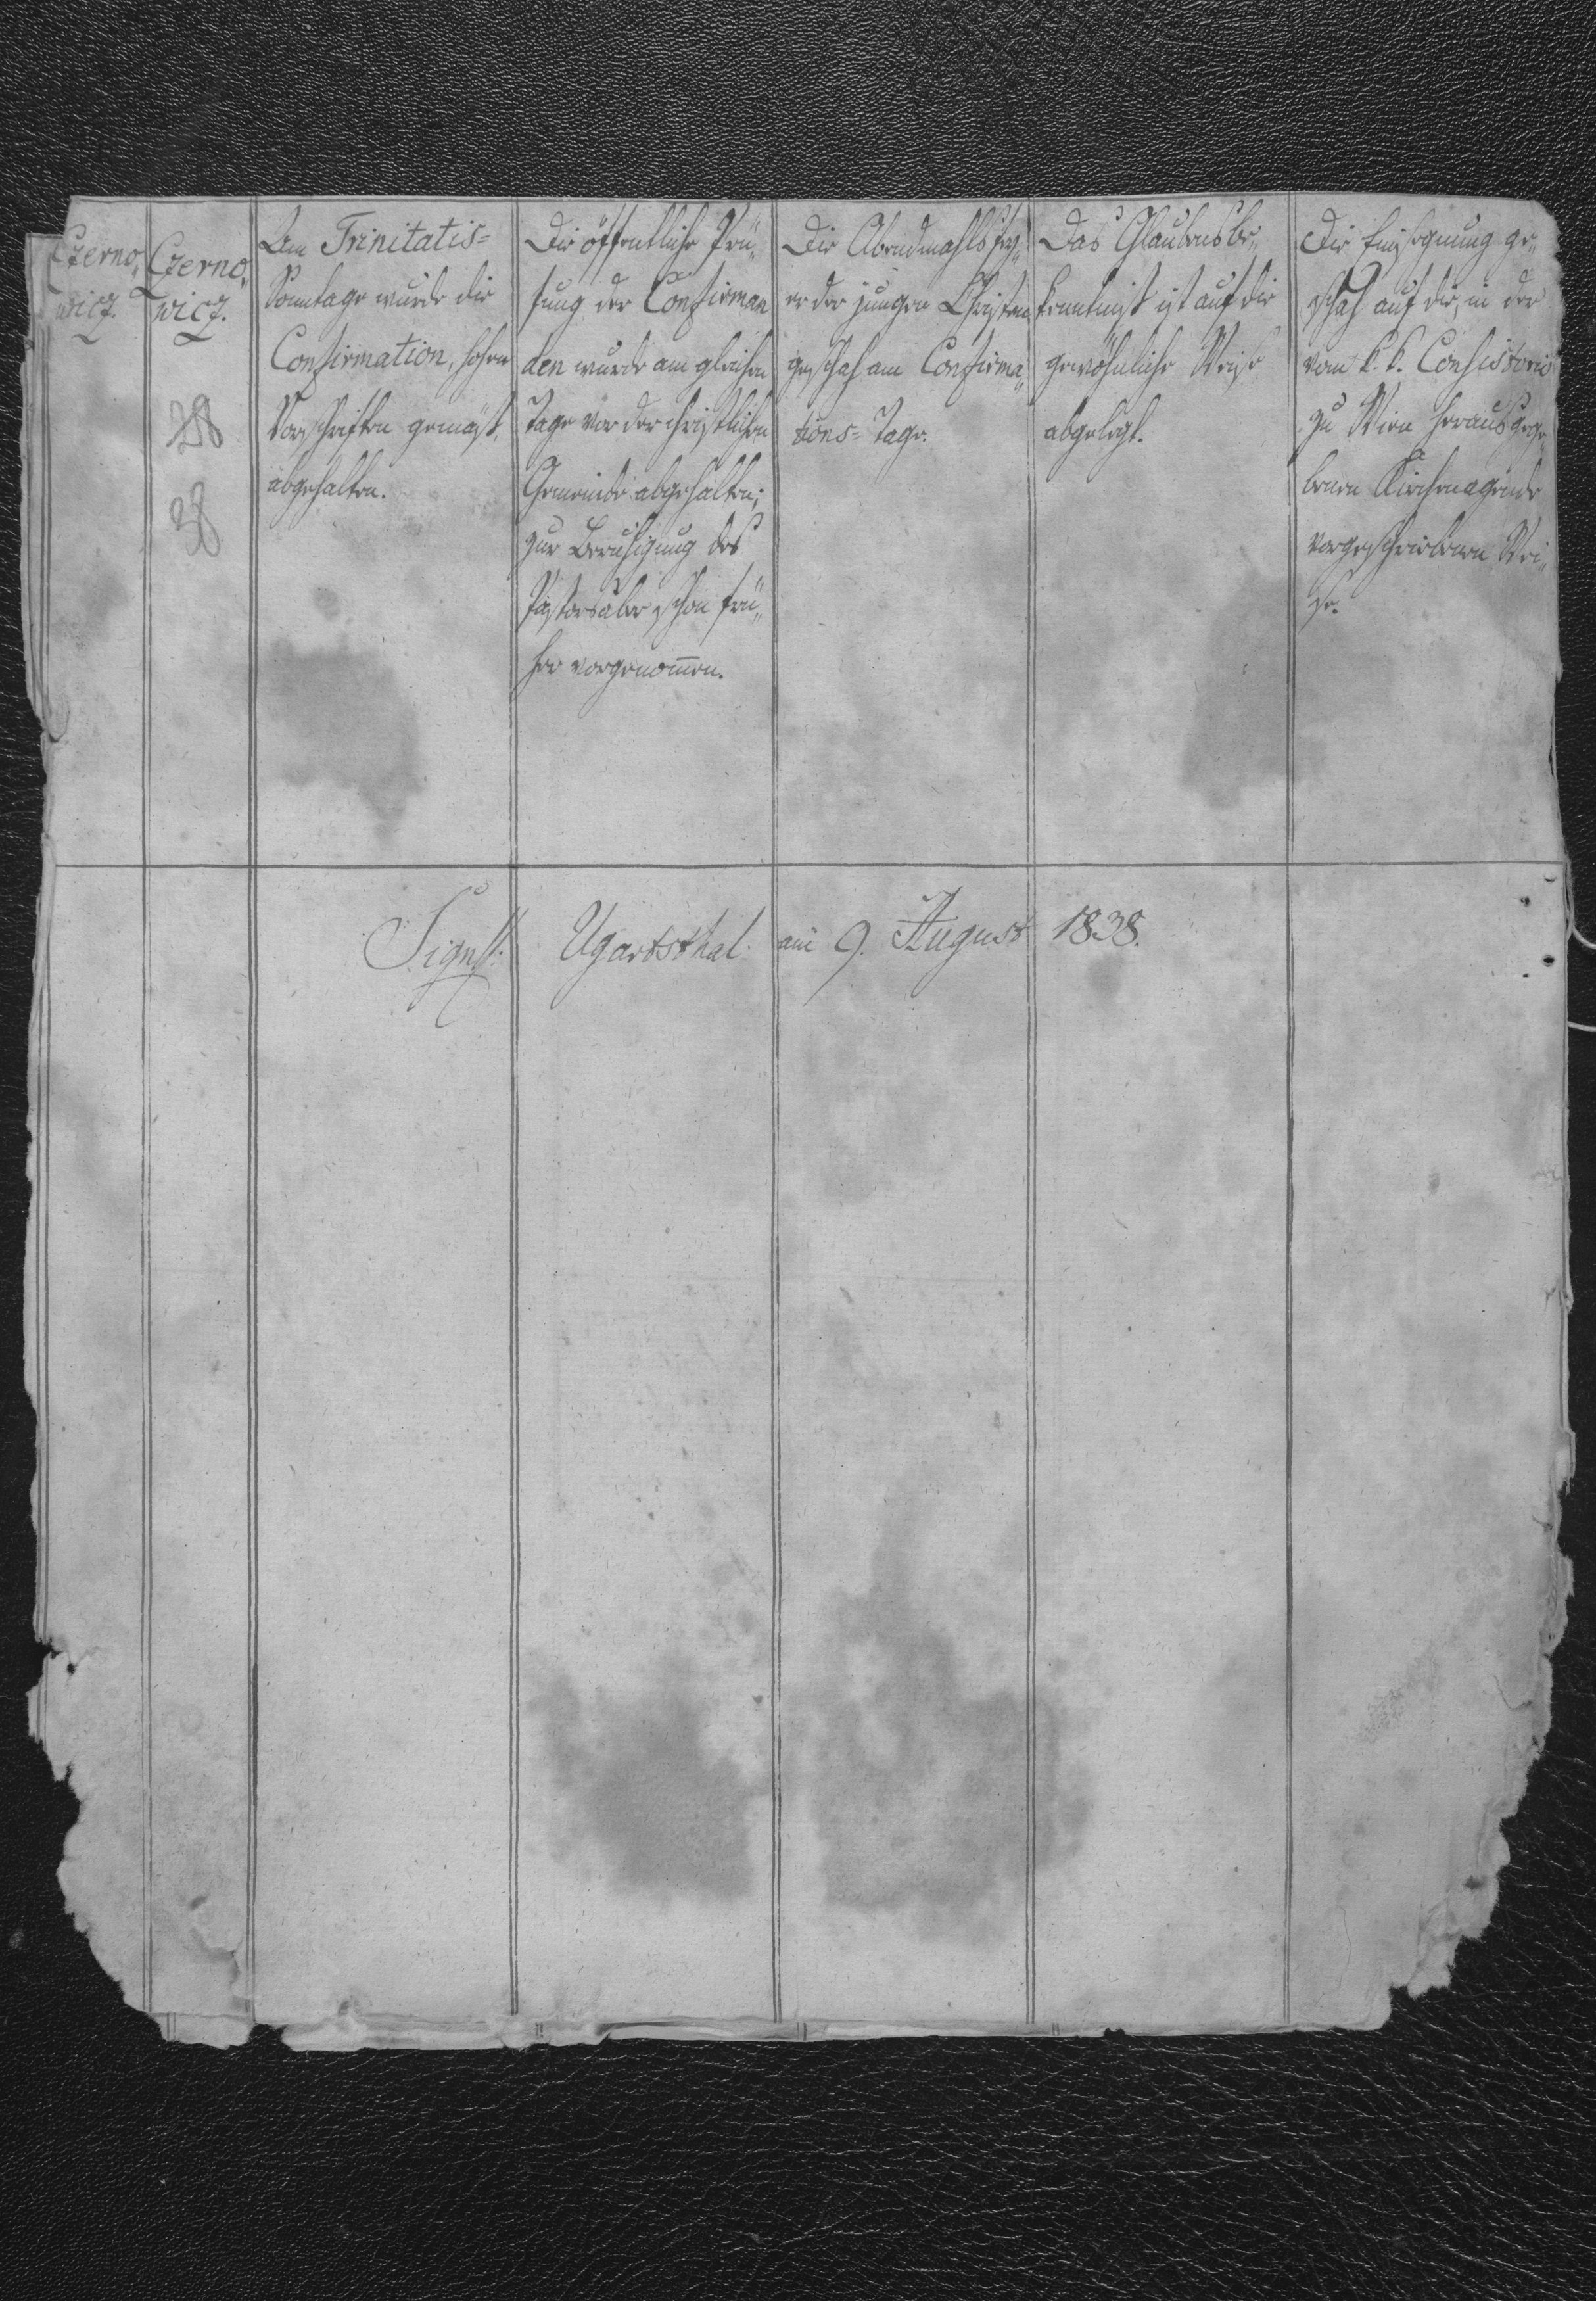 Czerno„
wicz.
Czerno„
wicz.
38
38
Am Trinitatis=
Sonntage wurde die
Confirmation, hohen
Vorschriften gemäß,
abgehalten.
Die öffentliche Prü„
fung der Confirman
den wurde am gleichen
Tage vor der christlichen
Gemeinde abgehalten;
zur Beruhigung des
Pastors aber schon frü„
her vorgenom̄en.
Die Abendmahlsfey„
er der jungen Christen
geschah am Confirma„
tions=Tage.
Das Glaubensbe„
kenntniß ist auf die
gewöhnliche Weise
abgelegt.
Die Einsegnung ge„
schah auf die, in der
vom k. k. Consistorio
zu Wien herausgege„
benen Kirchenagende
vorgeschriebenen Wei„
se.
Ugartsthal am 9. August 1838.